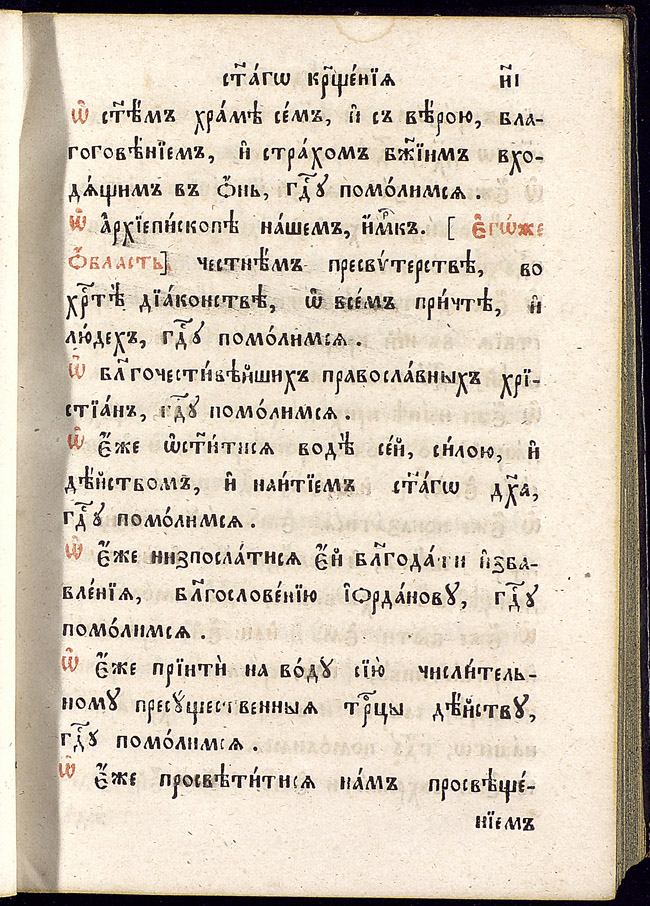 ст҃а́гѡ кр҃ще́нїѧ н҃і
Ѡ҆ ст҃ѣ́мъ хра́мѣ се́мъ, и҆ съ вѣ́рою, бла-
гоговѣ́нїемъ, и҆ стра́хомъ бж҃їимъ вхо-
дѧ́щимъ въ ѻ҆́нь, гдⷭ҇ꙋ помо́лимсѧ.
Ѡ҆ а҆рхїепи́скопѣ на́шемъ, и҆́м̾къ. [ є҆гѡ́же
ѻ҆́бласть] честнѣ́мъ пресвѵ́терствѣ, во
хрⷭ҇тѣ̀ дїа́конствѣ, ѡ҆ всѐмъ при́чтѣ, и҆
лю́дехъ, гдⷭ҇ꙋ помо́лимсѧ.
Ѡ҆ бл҃гочести́вѣйшихъ правосла́вныхъ хрї-
стїа́нъ, гдⷭ҇ꙋ помо́лимсѧ.
Ѡ҆ є҆́же ѡ҆ст҃и́тисѧ водѣ̀ се́й, си́лою, и҆
дѣ́йствомъ, и҆ наи́тїемъ ст҃а́гѡ дх҃а,
гдⷭ҇ꙋ помо́лимсѧ.
Ѡ҆ є҆́же низпосла́тисѧ є҆́й бл҃года́ти и҆зба-
вле́нїѧ, бл҃гослове́нїю і҆ѻрда́новꙋ, гдⷭ҇ꙋ
помо́лимсѧ.
Ѡ҆ є҆́же прїитѝ на во́дꙋ сїю̀ числи́тель-
номꙋ пресꙋ́щественныѧ трⷪ҇цы дѣ́йствꙋ,
гдⷭ҇ꙋ помо́лимсѧ
Ѡ҆ є҆́же просвѣти́тисѧ на́мъ просвѣще́-
нїемъ